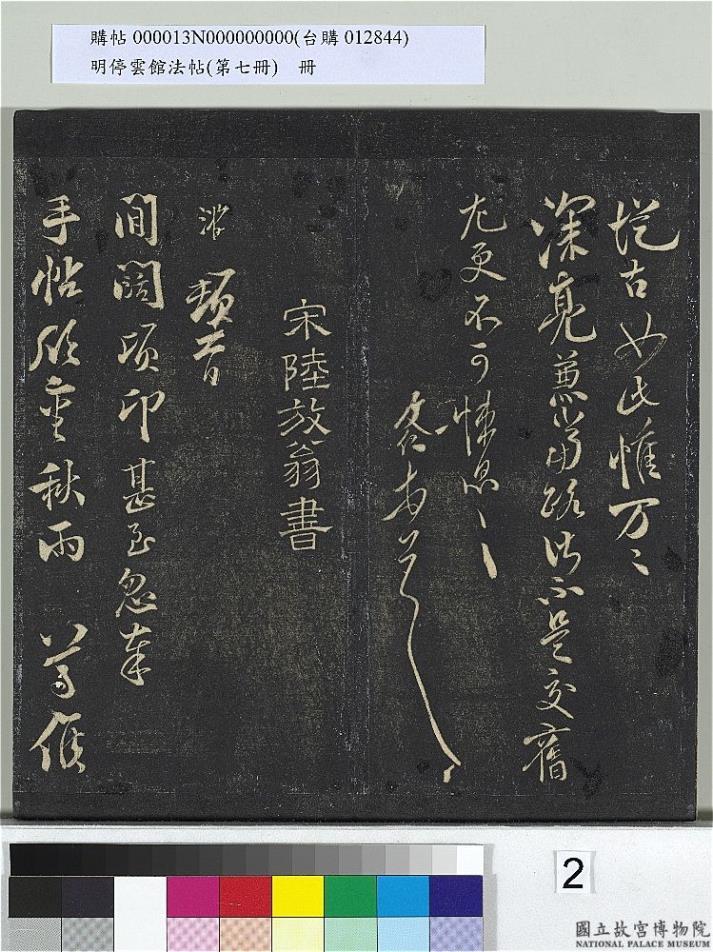 購帖 000013N000000000(台購 012844)
明停雲館法帖(第七冊) 冊
古如此惟万〻
深亮 不是交舊
尤更不可悚息〻
宋陸放翁書
游 頓首
間闊頃卬甚至忽奉
手帖欣審秋雨 尊候
2
國立故宮博物院
NATIONAL PALACE MUSEUM